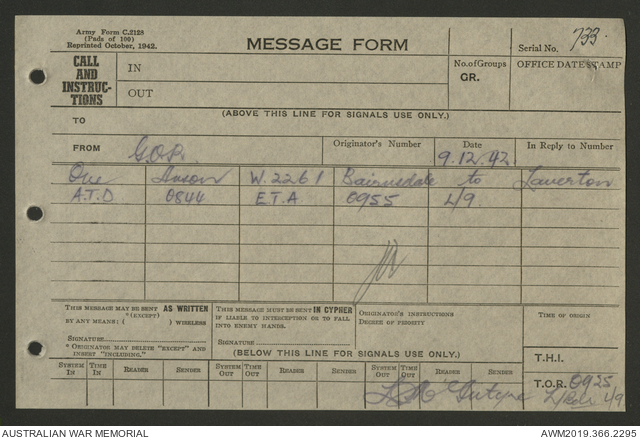 Army Form C.2128
(Pads of 100)
Reprinted October, 1942.
MESSAGE FORM
Serial No. 733.
CALL AND INSTRUC-TIONS
IN
OUT
No. of Groups
GR.
OFFICE DATE STAMP
(ABOVE THIS LINE FOR SIGNALS USE ONLY.)
TO
FROM G.O.R.
Originator's Number
Date 9.12.42
In Reply to Number
One Anson W.2261 Bairnsdale to Laverton
A.T.D 0844 E.T.A 0955 L/9.
THIS MESSAGE MAY BE SENT AS WRITTEN
*(EXCEPT)
BY ANY MEANS: ( ) WIRELESS
SIGNATURE
* ORIGINATOR MAY DELETE "EXCEPT" AND
INSERT "INCLUDING."
THIS MESSAGE MUST BE SENT IN CYPHER
IF LIABLE TO INTERCEPTION OR TO FALL
INTO ENEMY HANDS.
SIGNATURE
ORIGINATOR'S INSTRUCTIONS
DEGREE OF PRIORITY
TIME OF ORIGIN
(BELOW THIS LINE FOR SIGNALS USE ONLY.)
T.H.I.
SYSTEM IN TIME IN READER SENDER SYSTEM OUT TIME OUT READER SENDER SYSTEM OUT TIME OUT READER SENDER
T.O.R. 0925
L/9
AUSTRALIAN WAR MEMORIAL
AWM2019.366.2295